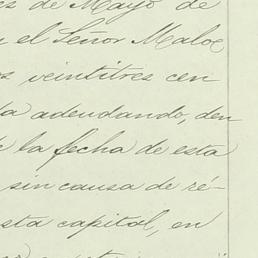 es de Mayo de
el Señor Maloe
os veintitres cen
ta adeudando, den
de la fecha de esta
sin causa de ré-
sta capital, en